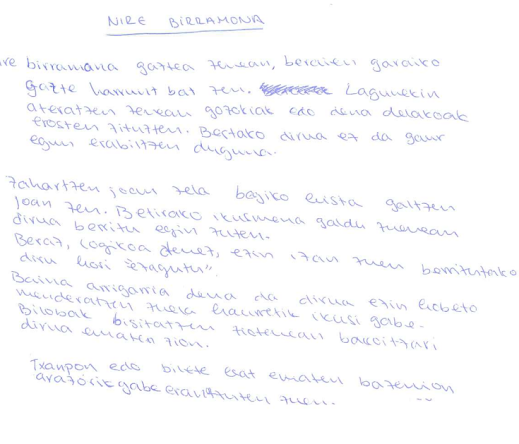 NIRE BIRRAMONA
re birramona gaztea zenean, bere garaiko
gazte harrunt bat zen. Lagunekin
ateratzen zenean gozokiak edo dena delakoak
erosten zituzten. Bestako dirua ez da gaur
egun erabiltzen duguna.
Zahartzen joan zela begiko bista galtzen
joan zen. Betirako ikusmena galdu zuenean
dirua berritu egin zuten.
Beraz, logikoa denez, ezin izan zuen berritutako
diru hori "ezagutu".
Baina arrigarria dena da dirua ezin hobeto
menderatzen zuela haurretik ikusi gabe.
Bilobak bisitatzen ziotenean bakoitzari
dirua ematen zion.
Txanpon edo bilete bat ematen bazenion
arazorik gabe erabiltzen zuen.